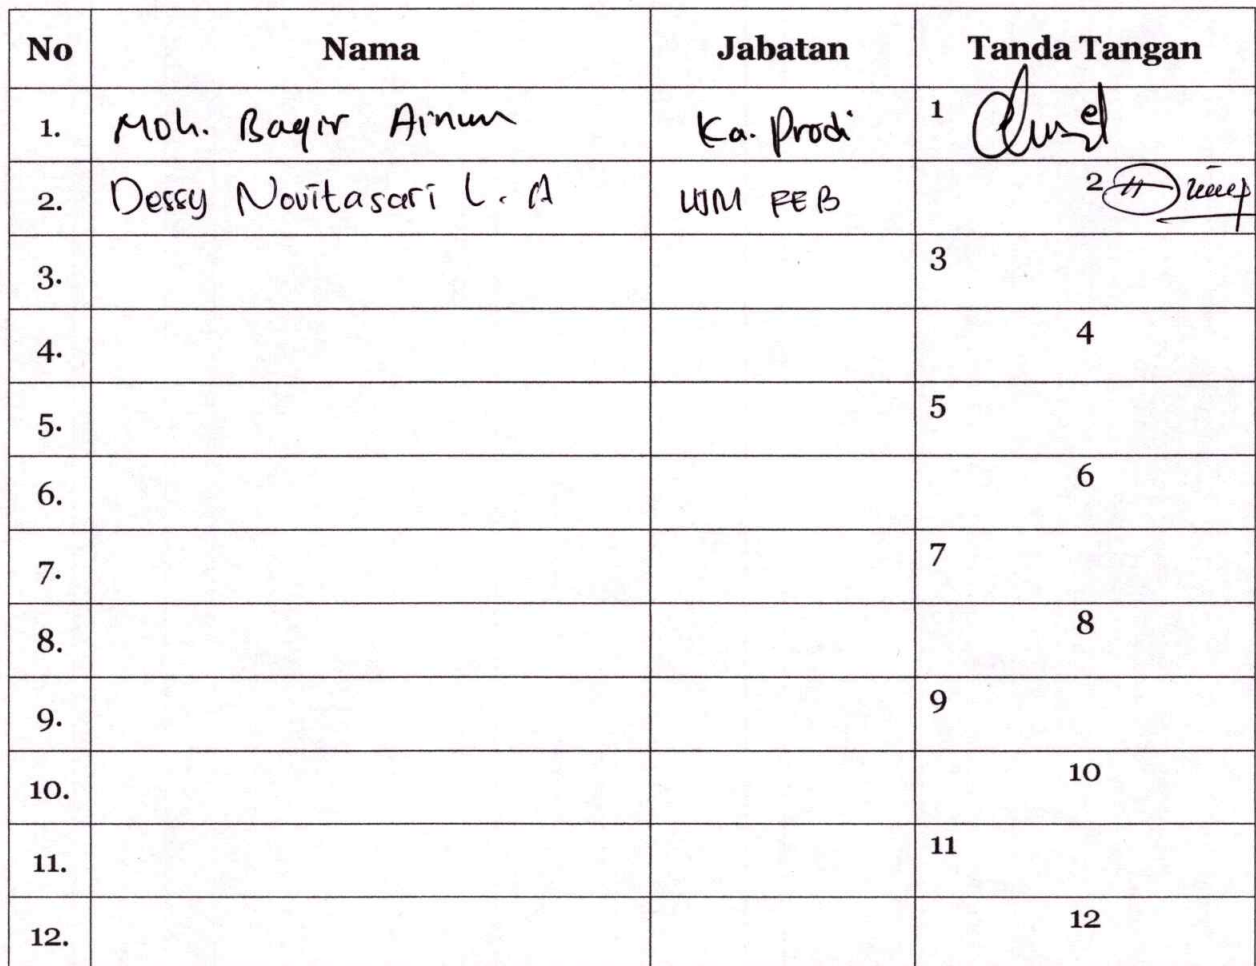 No Nama Jabatan Tanda Tangan
1. Moh. Baqir Ainun Ka. Prodi 1
2. Dessy Novitasari L. A UJM FEB 2
3. 3
4. 4
5. 5
6. 6
7. 7
8. 8
9. 9
10. 10
11. 11
12. 12